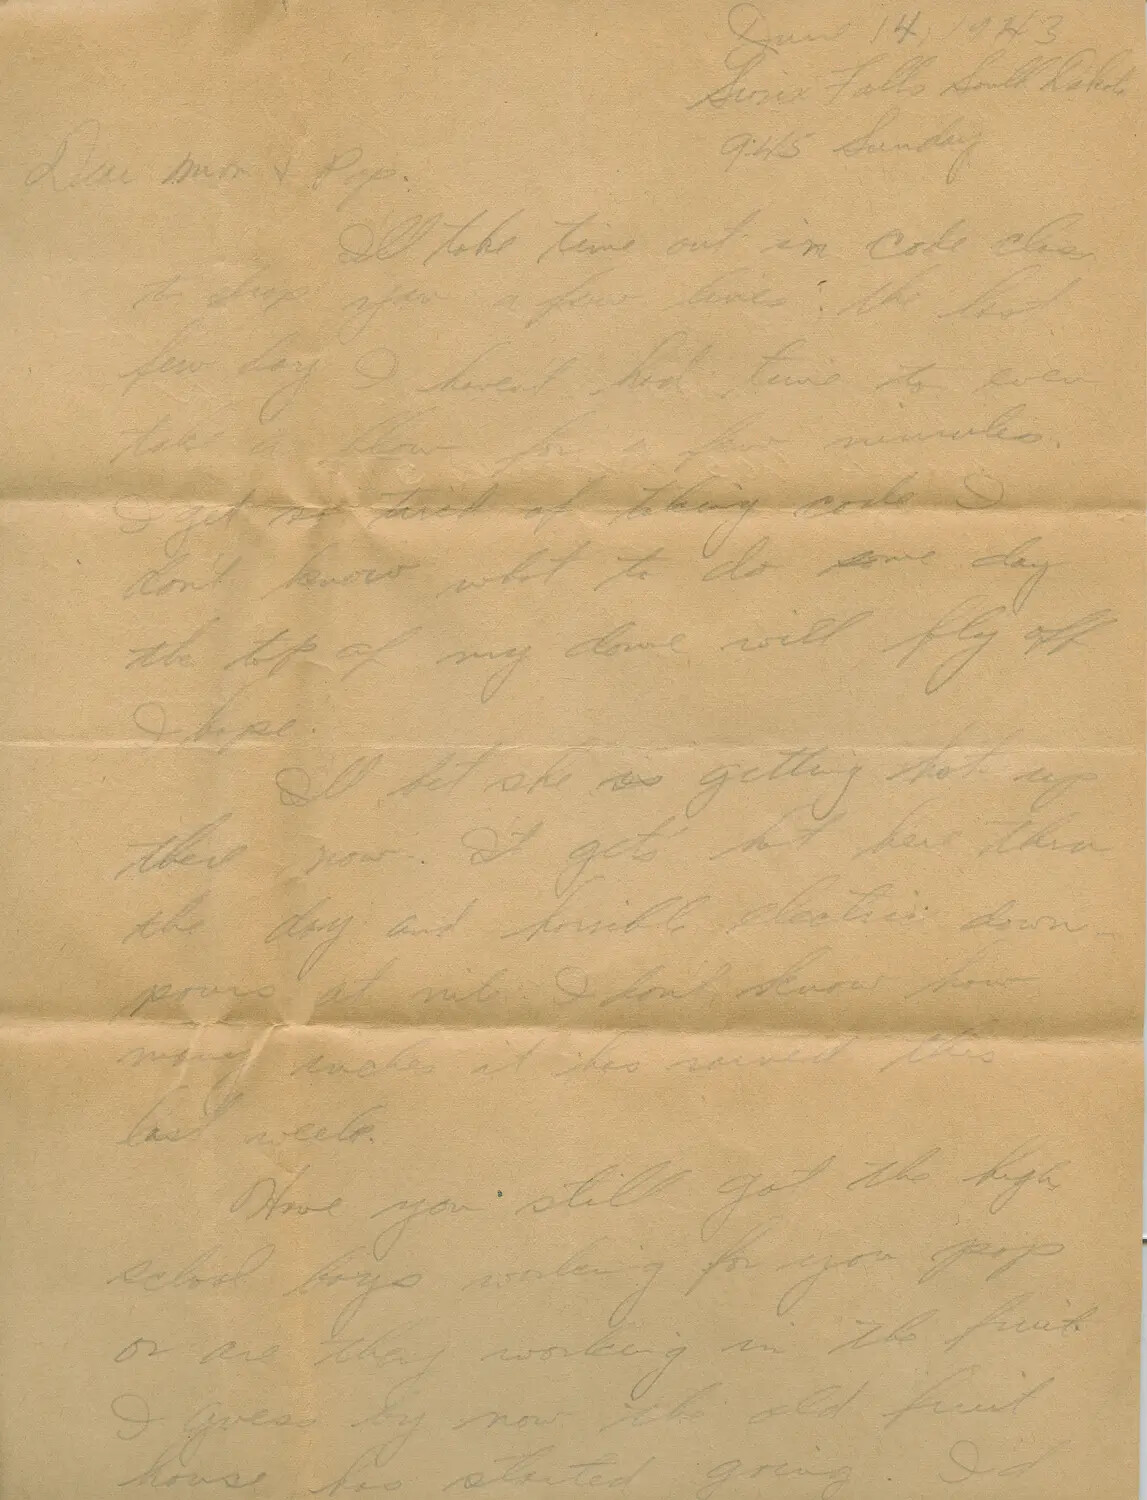 June 14, 1943
Sioux Falls South Dakota
9:45 Sunday
Dear Mom & Pop.
I'll take time out in code class
to drop you a few lines. the last
few day I havent had time to even
take a blow for a few minutes.
I get so tired of taking code I
don't know what to do some day
the top of my dome will fly off
I hope.
I'll bet she is getting hot up
there now. It gets hot here thru
the day and horrible electric down-
pours at nite. I don't know how
many inches it has rained this
last week.
Have you still got the high
school boys working for you pop
or are they working in the fruit.
I guess by now the old fruit
house has started going. I'd